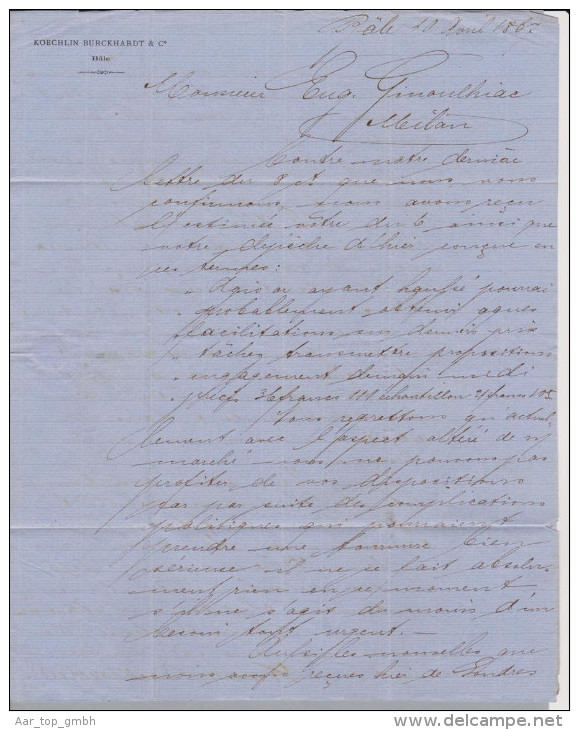 Bâle 10 Avril 186
KOECHLIN BURCKHARDT & Cº
Bâle
Monsieur Eug. Ginoulhiac
Milan
Contre notre dernière
lettre du 8 ct que nous vous
confirmons, nous avons reçu
l'estimée vôtre du 6 ainsi que
votre dépêche d'hier conçue en
ces termes:
" Agio or ayant haussé pourrai
" probablement obtenir
" facilitations sur derniers prix
" tâchez transmettre propositions
" engagement demain midi
" francs 111 échantillon 21 francs 105
Nous regrettons qu'actuel-
lement avec l'aspect altéré de
marché nous ne pouvons pas
profiter de vos dispositions
car par suite des complications
politiques qui pourraient
prendre une tournure bien
sérieuse il ne se fait absolu-
ment rien en ce moment
s'il ne s'agit du moins d'un
besoin tout urgent. —
Aussi les nouvelles que
nous avons reçues hier de Londres
Aar_top_gmbh
www.delcampe.net